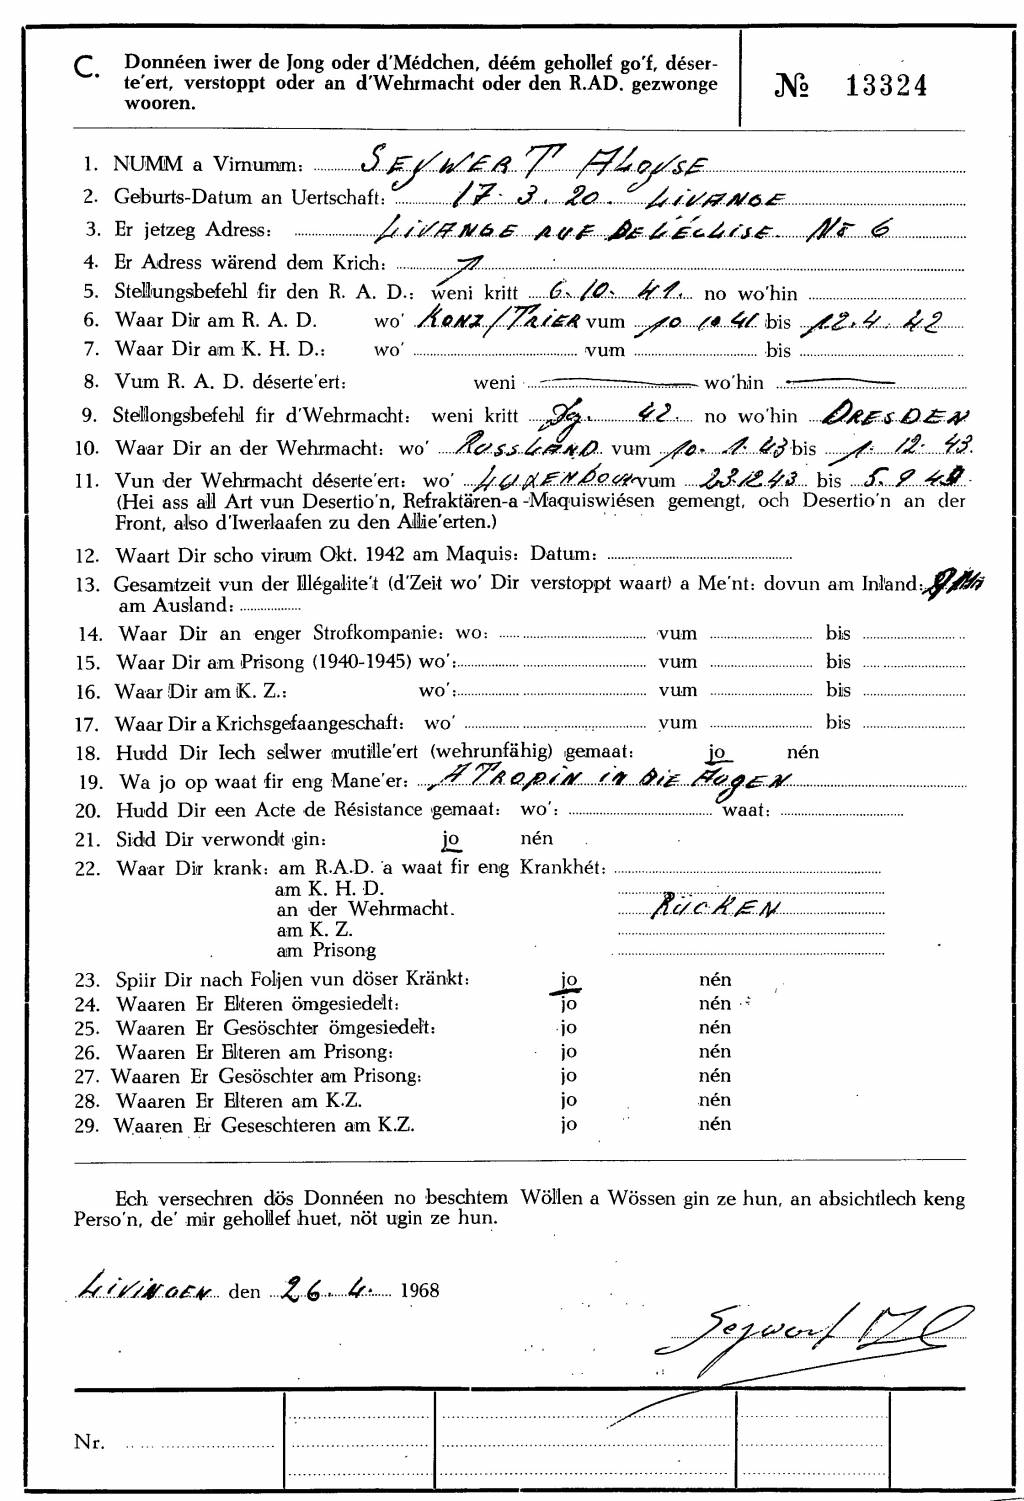 C. Donnéen iwer de Jong oder d'Médchen, déém gehollef go'f, déser-
te'ert, verstoppt oder an d'Wehrmacht oder den R.AD. gezwonge
wooren.
№ 13324
1. NUMM a Virnumm: SEYWERT ALOYSE
2. Geburts-Datum an Uertschaft: 17. 3. 20. LIVANGE
3. Er jetzeg Adress: LIVANGE RUE DE L'ÉGLISE. No 6
4. Er Adress wärend dem Krich:
5. Stellungsbefehl fir den R. A. D.: weni kritt 6. 10. 41. no wo'hin
6. Waar Dir am R. A. D. wo' KONZ/TRIER vum 10 10 41 bis 12. 4. 42
7. Waar Dir am K. H. D.: wo' vum bis
8. Vum R. A. D. déserte'ert: weni — wo'hin —
9. Stellongsbefehl fir d'Wehrmacht: weni kritt Dez. 42. no wo'hin DRESDEN
10. Waar Dir an der Wehrmacht: wo' RUSSLAND vum 10. 1. 43 bis 1. 12. 43.
11. Vun der Wehrmacht déserte'ert: wo' vum 23.12.43 bis 5. 9
(Hei ass all Art vun Desertio'n, Refraktären-a-Maquiswiésen gemengt, och Desertio'n an der
Front, also d'Iwerlaafen zu den Allie'erten.)
12. Waart Dir scho virum Okt. 1942 am Maquis: Datum:
13. Gesamtzeit vun der Illégalite't (d'Zeit wo' Dir verstoppt waart) a Me'nt: dovun am Inland:
am Ausland:
14. Waar Dir an enger Strofkompanie: wo: vum bis
15. Waar Dir am Prisong (1940-1945) wo': vum bis
16. Waar Dir am K. Z.: wo': vum bis
17. Waar Dir a Krichsgefaangeschaft: wo' vum bis
18. Hudd Dir Iech selwer mutille'ert (wehrunfähig) gemaat: jo nén
19. Wa jo op waat fir eng Mane'er: ATROPIN IN DIE AUGEN
20. Hudd Dir een Acte de Résistance gemaat: wo': waat:
21. Sidd Dir verwondt gin: jo nén
22. Waar Dir krank: am R.A.D. a waat fir eng Krankhét:
am K. H. D.
an der Wehrmacht. RÜCKEN
am K. Z.
am Prisong
23. Spiir Dir nach Foljen vun döser Kränkt: jo nén
24. Waaren Er Elteren ömgesiedelt: jo nén
25. Waaren Er Gesöschter ömgesiedelt: jo nén
26. Waaren Er Elteren am Prisong: jo nén
27. Waaren Er Gesöschter am Prisong: jo nén
28. Waaren Er Elteren am K.Z. jo nén
29. Waaren Er Geseschteren am K.Z. jo nén
Ech versechren dös Donnéen no beschtem Wöllen a Wössen gin ze hun, an absichtlech keng
Perso'n, de' mir gehollef huet, nöt ugin ze hun.
LIVINGEN den 26. 4. 1968
Seywert
Nr.